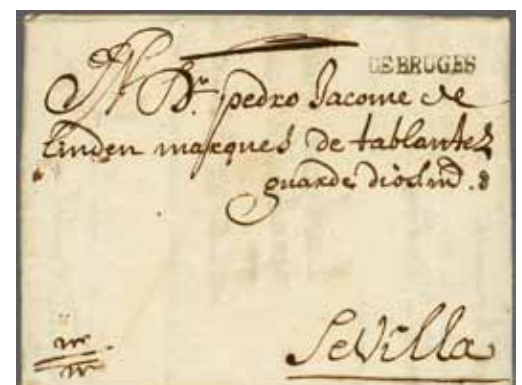 DE BRUGES
A Dn. pedro Jacome de
Linden marques de tablantes
guarde dios m.
Sevilla